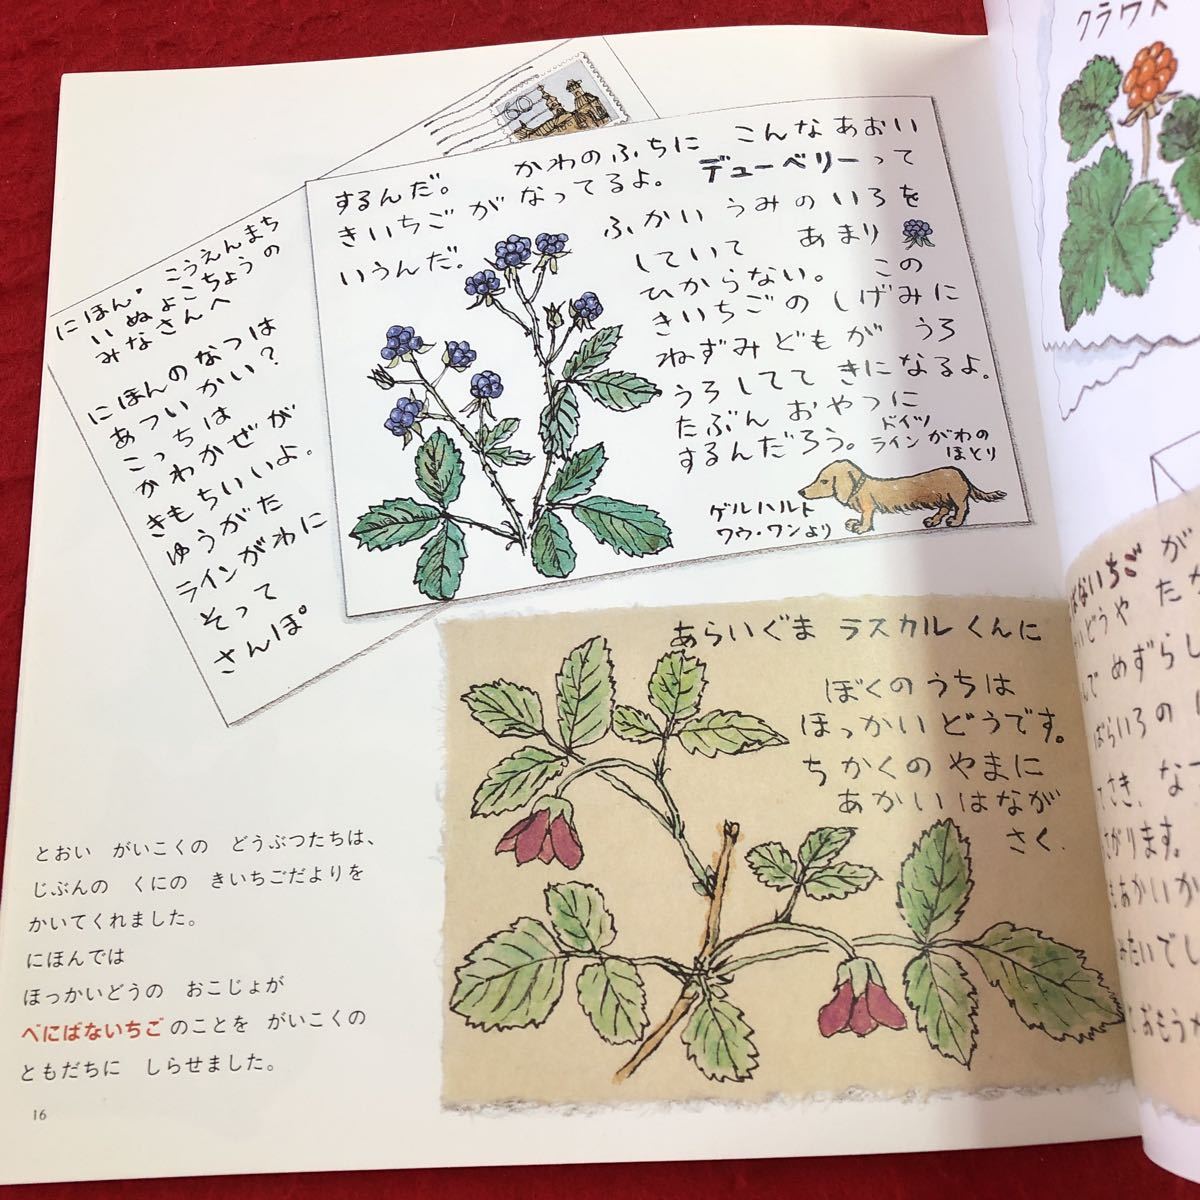 にほん. こうえんまち
いぬよこちょうの
みなさんへ
にほんのなつは
あついかい?
こっちは
かわかぜが
きもちいいよ.
ゆうがた
ラインがわに
そって
さんぽ
するんだ。 かわのふちに こんなあおい
きいちごが なってるよ。 デューベリーって
いうんだ。
ふかい うみのいろを
していて あまり
ひからない。 この
きいちごの しげみに
ねずみどもが うろ
うろしてて きになるよ。
たぶん おやつに
するんだろう。
ドイツ
ライン がわの
ほとり
ゲルハルト
ワウ・ワンより
60
あらいぐま ラスカルくんに
ぼくのうちは
ほっかいどうです。
ちかくの やまに
あかいはなが
さく.
とおい がいこくの どうぶつたちは、
じぶんの くにの きいちごだよりを
かいてくれました。
にほんでは
ほっかいどうの おこじょが
べにばないちごのことを がいこくの
ともだちに しらせました。
16
クラウド
ばないちご が
いどうや たか
んで めずらし
ばらいろの
てさき、な
さがります。
もあかいか
みたいでし
おもう